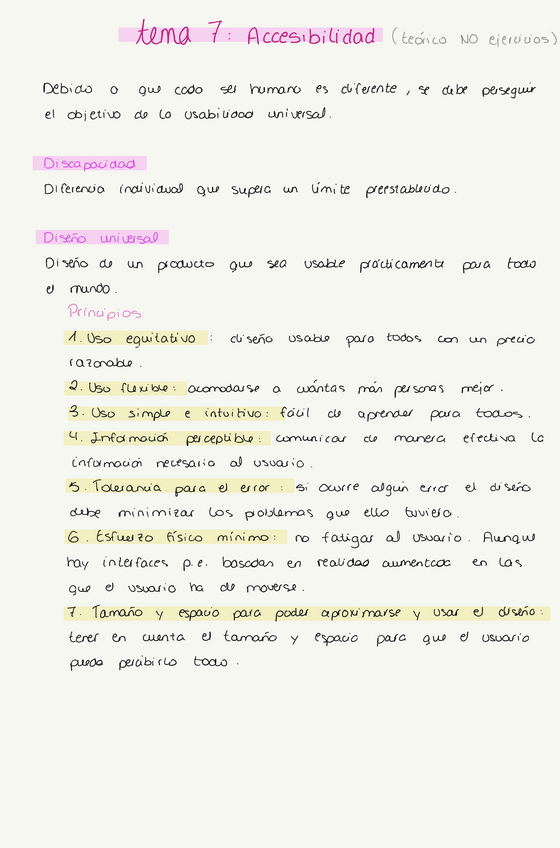 tema 7: Accesibilidad (teórico NO ejercicios)
Debido a que cada ser humano es diferente, se debe perseguir
el objetivo de la usabilidad universal.
Discapacidad
Diferencia individual que supera un límite preestablecido.
Diseño universal
Diseño de un producto que sea usable prácticamente para todo
el mundo.
Principios
1. Uso equitativo: diseño usable para todos con un precio
razonable.
2. Uso flexible: acomodarse a cuántas más personas mejor.
3. Uso simple e intuitivo: fácil de aprender para todos.
4. Información perceptible: comunicar de manera efectiva la
información necesaria al usuario.
5. Tolerancia para el error: si ocurre algún error el diseño
debe minimizar los problemas que ello tuviera.
6. Esfuerzo físico mínimo: no fatigar al usuario. Aunque
hay interfaces p.e. basadas en realidad aumentada en las
que el usuario ha de moverse.
7. Tamaño y espacio para poder aproximarse y usar el diseño:
tener en cuenta el tamaño y espacio para que el usuario
pueda percibirlo todo.